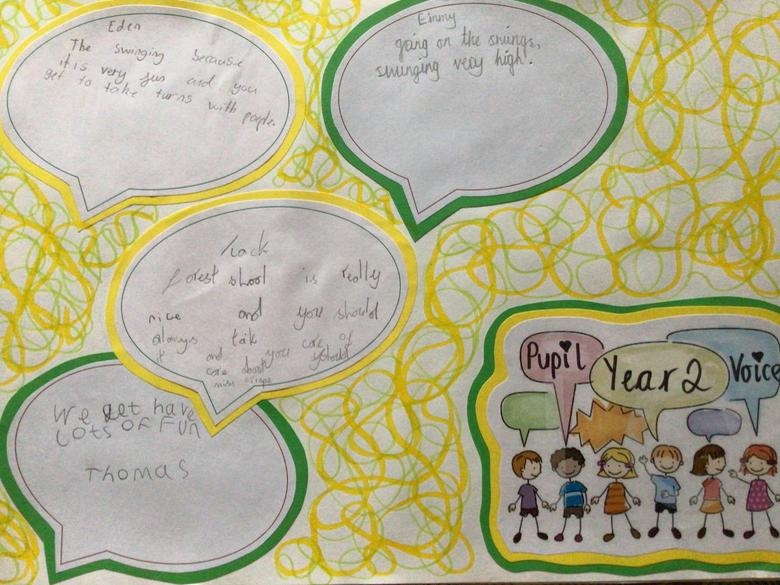 Eden
The swinging because
it is very fun and you
get to take turns with people.
Emmy
going on the swings,
swinging very high!
Forest shool is really
nice and you should
always taik care of
it and you should
care about
We get have
LOTS OF FUN
Thomas
Pupil
Year 2
Voice